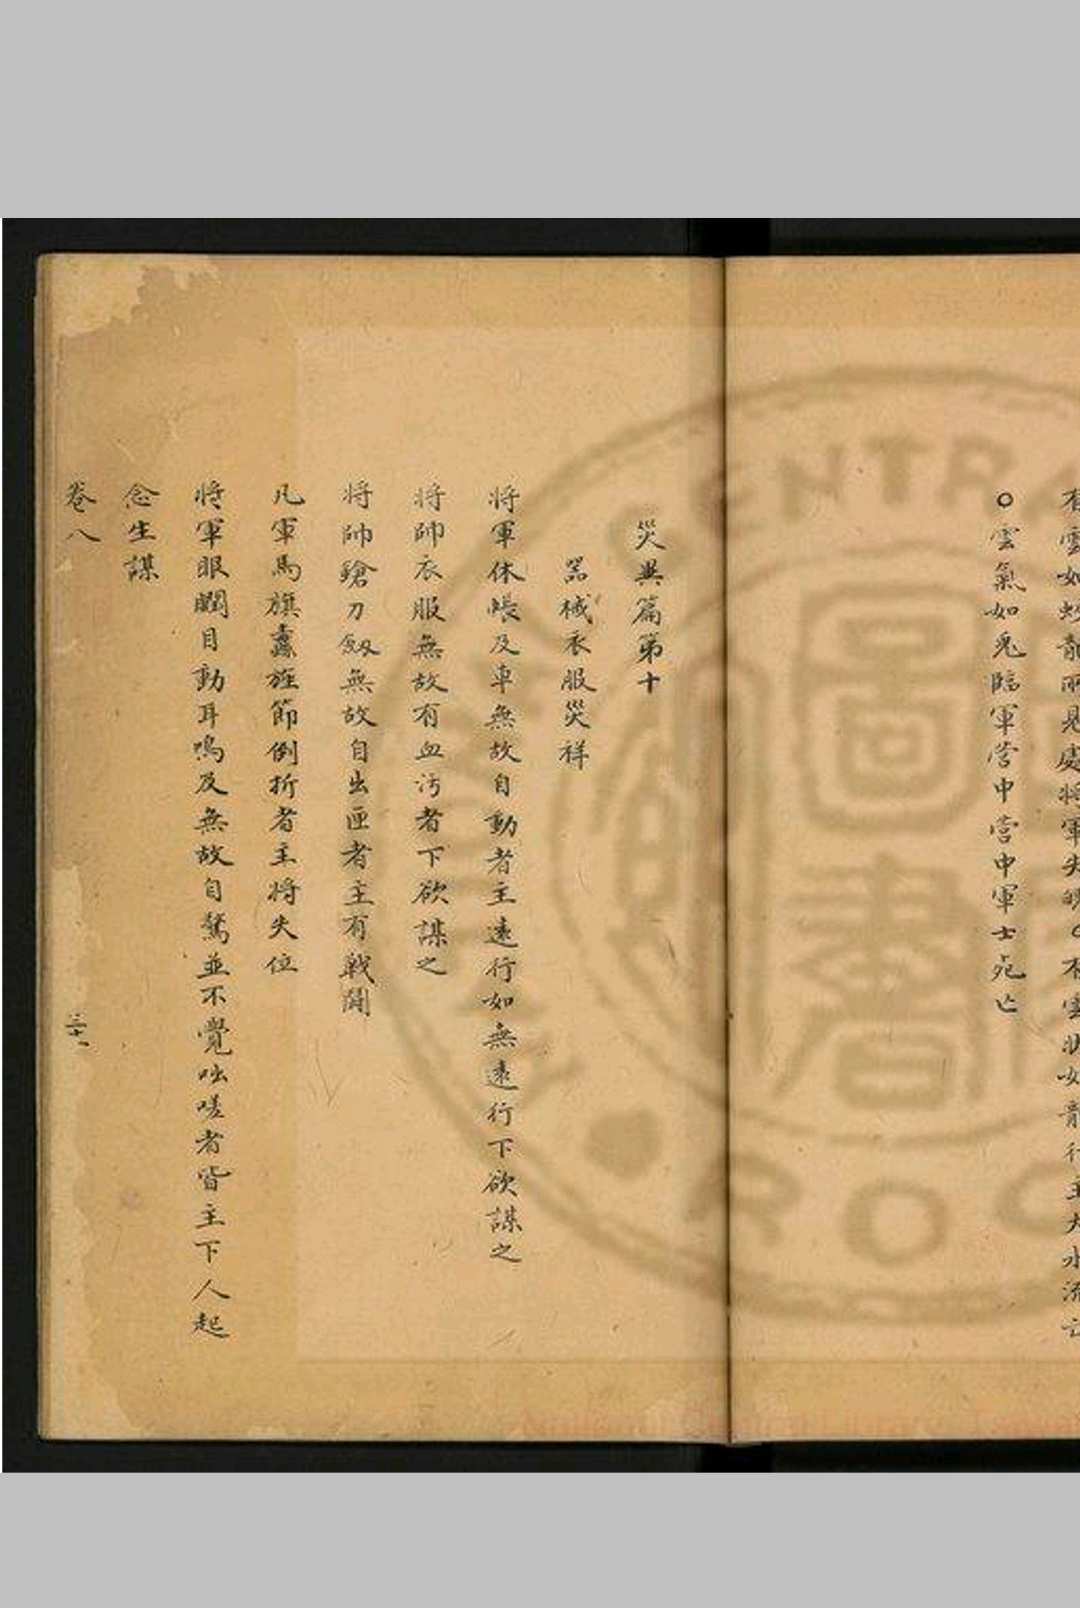 有雲如蛟龍所見處將軍失魄○有雲狀如龍行主大水流亡
○雲氣如兎臨軍營中營中軍士死亡
災異篇第十
器械衣服災祥
將軍休帳及車無故自動者主遠行如無遠行下欲謀之
將帥衣服無故有血污者下欲謀之
將帥鎗刀劔無故自出匣者主有戰鬪
凡軍馬旗纛旌節倒折者主將失位
將軍眼瞤目動耳鳴及無故自驚並不覺咄嗟者皆主下人起
念生謀
卷八
三十一
CENTRA
R O C